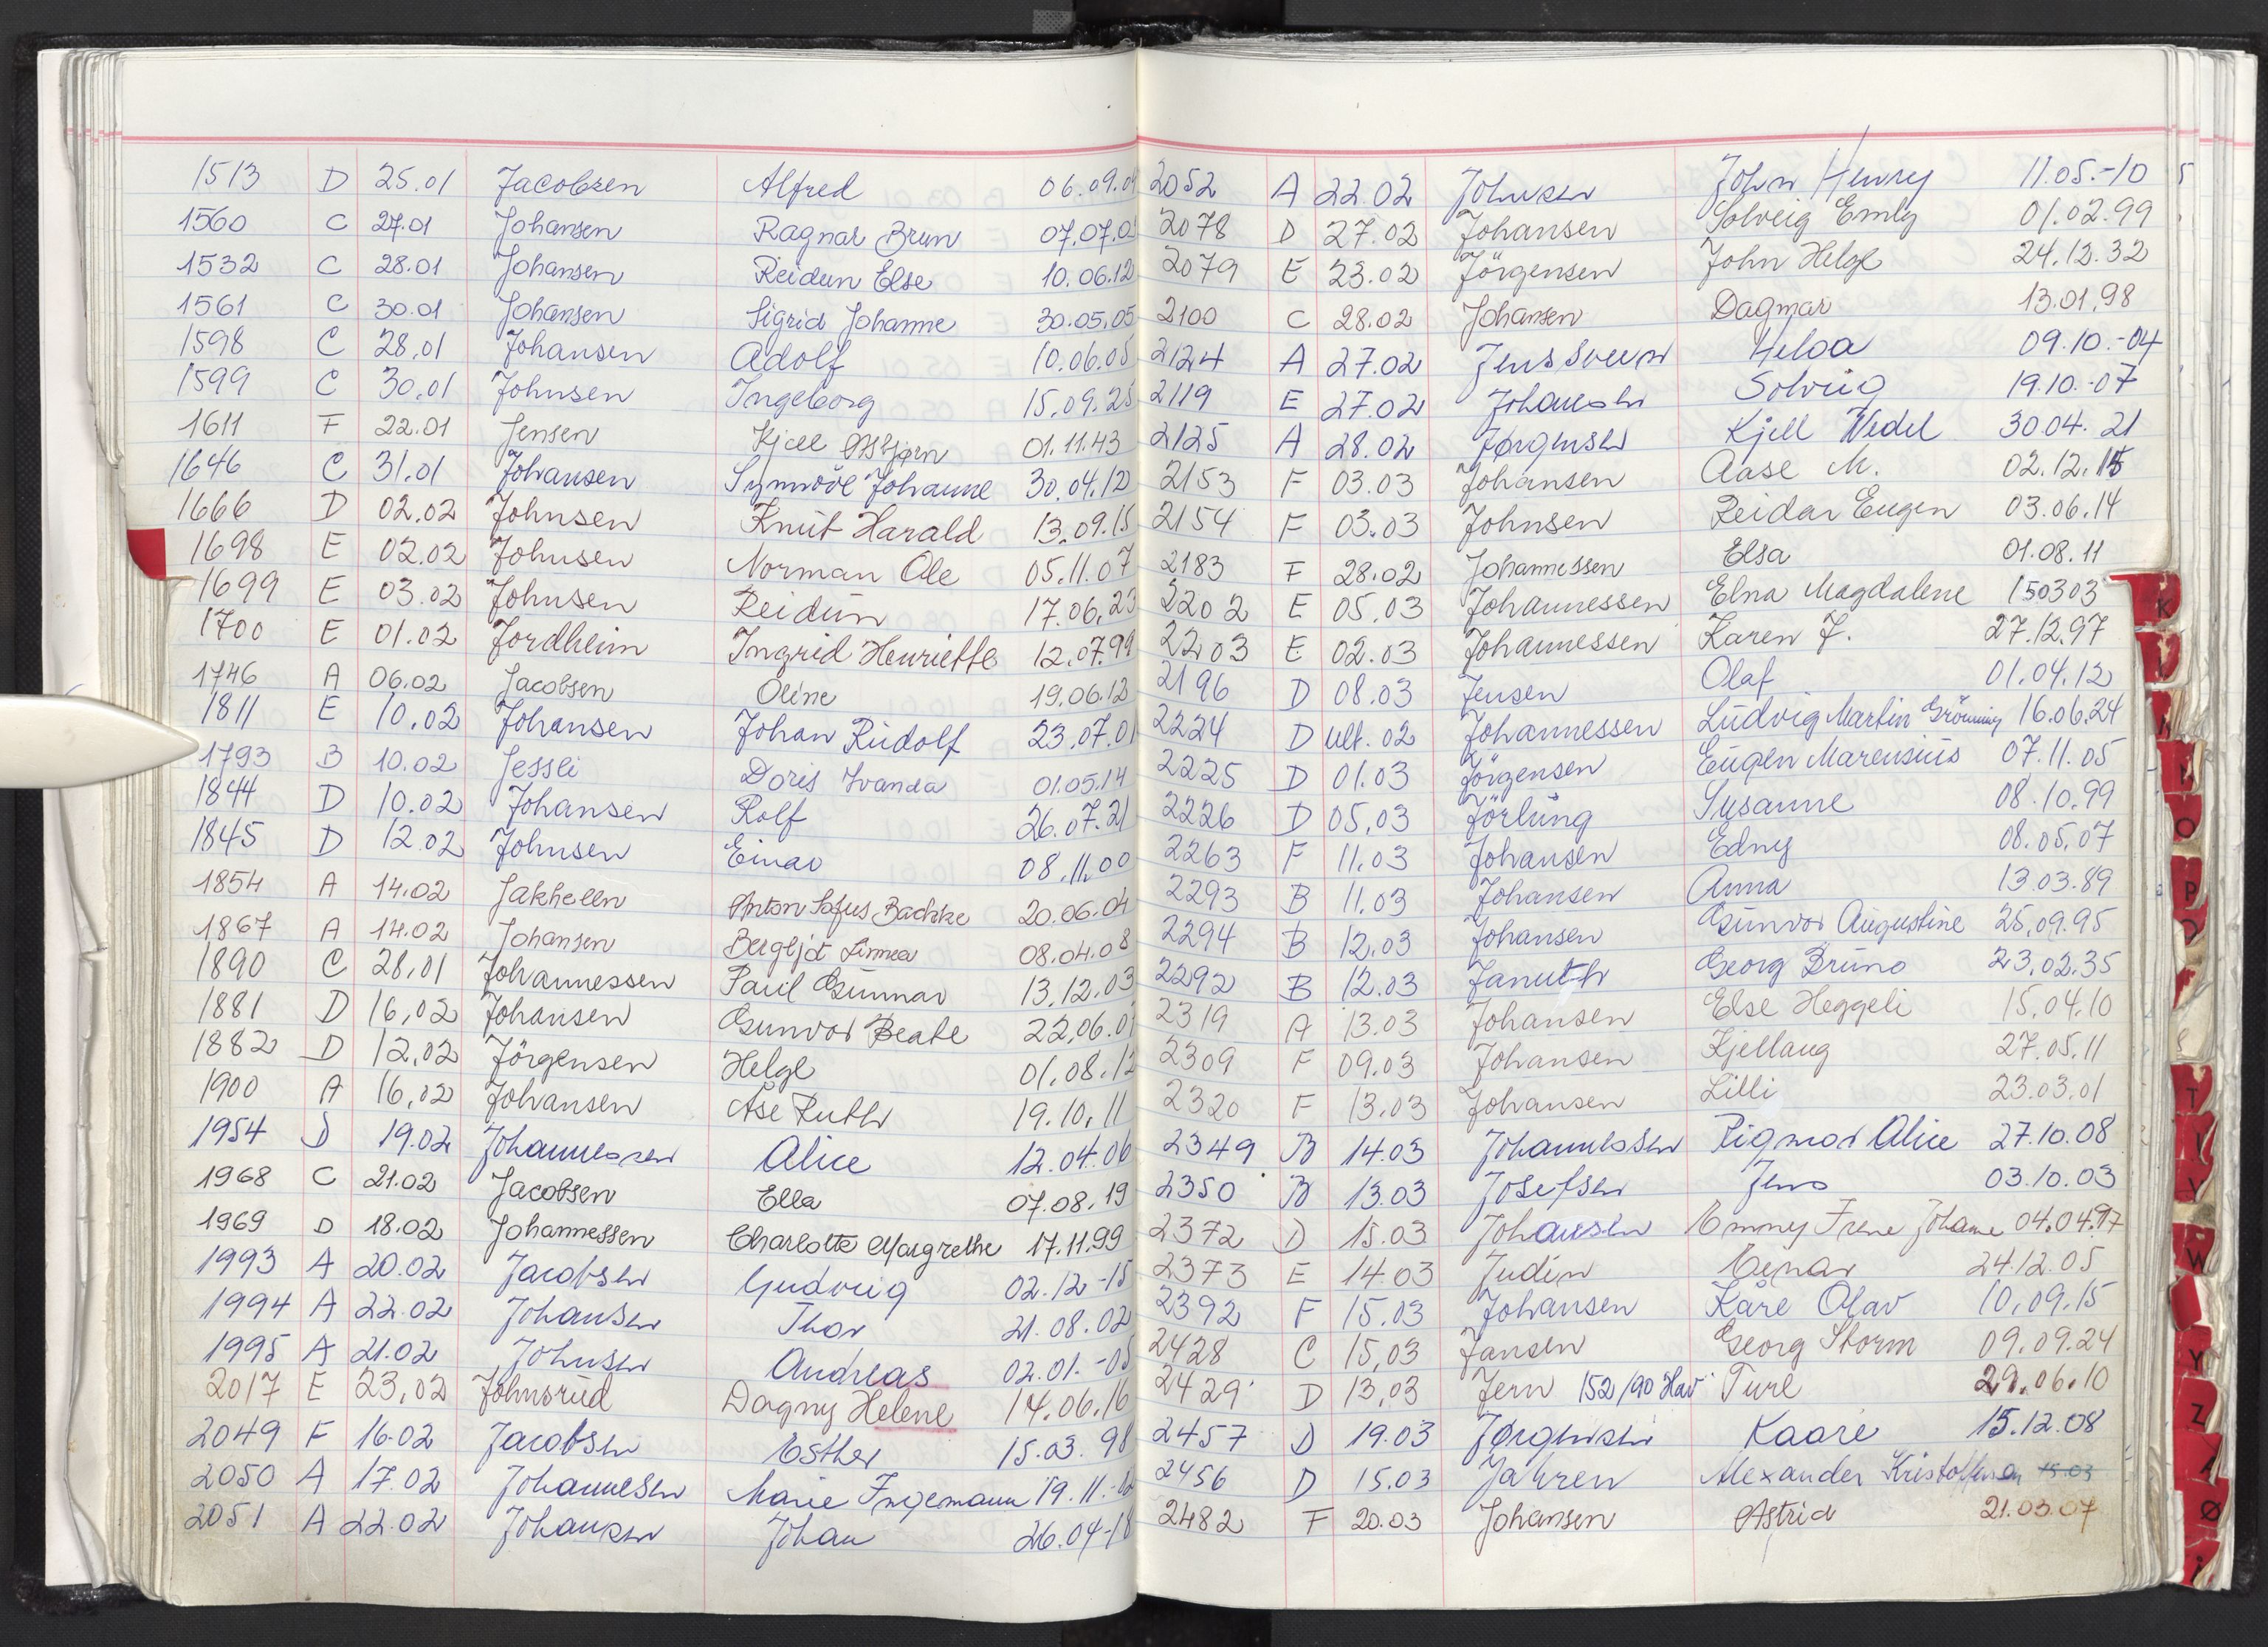 1513 D 25.01 Jacobsen Alfred 06.09.04
1560 C 27.01 Johansen Ragnar Brun 07.07.0
1532 C 28.01 Johansen Reidun Else 10.06.12
1561 C 30.01 Johansen Sigrid Johanne 30.05.05
1598 C 28.01 Johansen Adolf 10.06.05
1599 C 30.01 Johnsen Ingeborg 15.09.25
1611 F 22.01 Jensen Kjell Asbjørn 01.11.43
1646 C 31.01 Johansen Synnöve Johanne 30.04.12
1666 D 02.02 Johnsen Knut Harald 13.09.15
1698 E 02.02 Johnsen Norman Ole 05.11.07
1699 E 03.02 Johnsen Reidun 17.06.23
1700 E 01.02 Jordheim Ingrid Henriette 12.07.99
1746 A 06.02 Jacobsen Oline 19.06.12
1811 E 10.02 Johansen Johan Rudolf 23.07.01
1793 B 10.02 Jessli Doris Ivanda 01.05.14
1844 D 10.02 Johansen Rolf 26.07.21
1845 D 12.02 Johnsen Einar 08.11.00
1854 A 14.02 Jakhelln Anton Sofus Backke 20.06.04
1867 A 14.02 Johansen Bergljot Linnea 08.04.08
1890 C 28.01 Johannessen Paul Gunnar 13.12.03
1881 D 16.02 Johansen Gunvor Beate 22.06.0
1882 D 12.02 Jörgensen Helge 01.08.12
1900 A 16.02 Johansen Åse Ruth 19.10.11
1954 D 19.02 Johannessen Alice 12.04.06
1968 C 21.02 Jacobsen Ella 07.08.19
1969 D 18.02 Johannessen Charlotte Margrethe 17.11.99
1993 A 20.02 Jacobsen Gudveig 02.12-15
1994 A 22.02 Johansen Thor 21.08.02
1995 A 21.02 Johnsen Andreas 02.01.-05
2017 E 23.02 Johnsrud Dagny Helene 14.06.16
2049 F 16.02 Jacobsen Esther 15.03.98
2050 A 17.02 Johannesen Marie Ingemann 19.11.-02
2051 A 22.02 Johansen Johan 26.04-18
2052 A 22.02 Johnsen John Henry 11.05.-10
2078 D 27.02 Johansen Solveig Emly 01.02.99
2079 E 23.02 Jörgensen John Helge 24.12.32
2100 C 28.02 Johansen Dagmar 13.01.98
2124 A 27.02 Jens Sveen Helga 09.10.-04
2119 E 27.02 Johansen Solveig 19.10.-07
2125 A 28.02 Jørgensen Kjell Wedel 30.04.21
2153 F 03.03 Johansen Aase M. 02.12.15
2154 F 03.03 Johnsen Reidar Eugen 03.06.14
2183 F 28.02 Johannessen Elsa 01.08.11
2202 E 05.03 Johannessen Elna Magdalene 150303
2203 E 02.03 Johannessen Karen J. 27.12.97
2196 D 08.03 Jensen Olaf 01.04.12
2224 D ult.02 Johannessen Ludvig Martin Grönning 16.06.24
2225 D 01.03 Jörgensen Eugen Marensius 07.11.05
2226 D 05.03 Jörlung Susanne 08.10.99
2263 F 11.03 Johansen Edny 08.05.07
2293 B 11.03 Johansen Anna 13.03.89
2294 B 12.03 Johansen Gunvor Augustine 25.09.95
2292 B 12.03 Januth Georg Bruno 23.02.35
2319 A 13.03 Johansen Else Heggeli 15.04.10
2309 F 09.03 Johansen Kjellaug 27.05.11
2320 F 13.03 Johansen Lilli 23.03.01
2349 B 14.03 Johannessen Rigmor Alice 27.10.08
2350 B 13.03 Josefsen Jens 03.10.03
2372 D 15.03 Johansen Emmy Irene Johanne 04.04.97
2373 E 14.03 Judin Einar 24.12.05
2392 F 15.03 Johansen Kåre Olav 10.09.15
2428 C 15.03 Jansen Georg Storm 09.09.24
2429 D 13.03 Jern 152/90 Hav Ture 29.06.10
2457 D 19.03 Jørgensen Kaare 15.12.08
2456 D 15.03 Jahren Alexander Kristoffersen 15.03
2482 F 20.03 Johansen Astrid 21.03.07
K
L
M
N
O
P
T
W
Y
Z
Ø